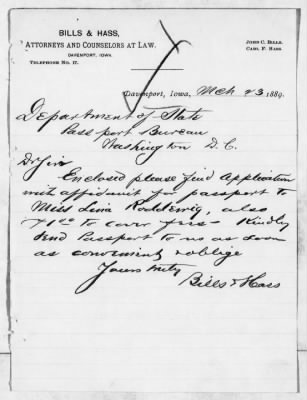 BILLS & HASS,
ATTORNEYS AND COUNSELORS AT LAW.
DAVENPORT, IOWA.
TELEPHONE No. 17.
JOHN C. BILLS.
CARL F. HASS.
Davenport, Iowa, Mch 23 1889.
Department of State
Passport Bureau
Washington D.C.
Dr Sir
Enclosed please find Application
with affidavit for passport to
Miss Lina Roddewig, also
to cover fees - Kindly
send Passport to us as soon
as convenient & oblige
Yours truly
Bills & Hass